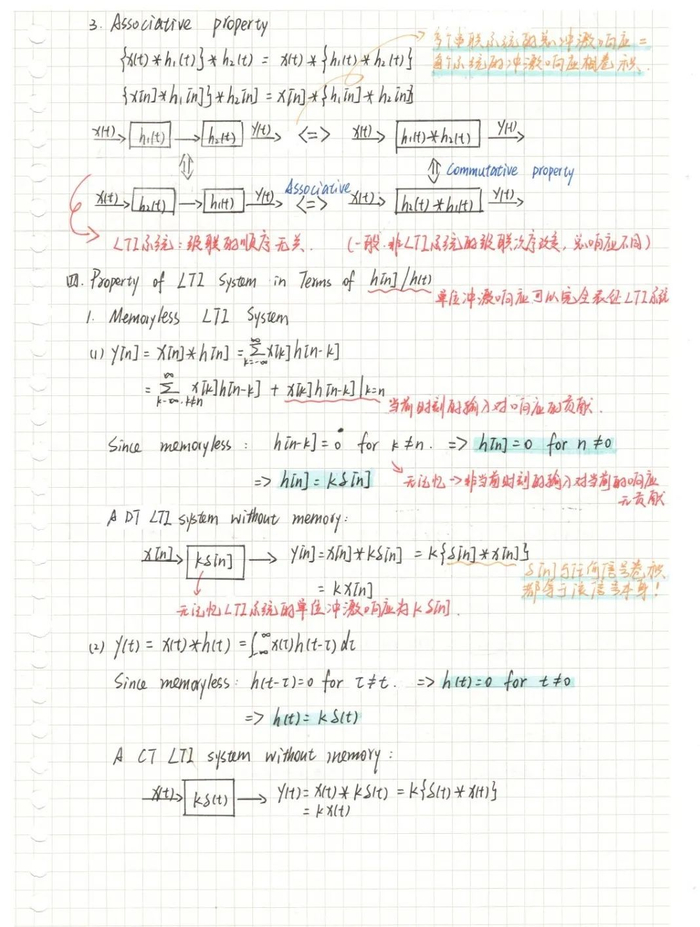 3. Associative property
{x(t)*h₁(t)}*h₂(t) = x(t)*{h₁(t)*h₂(t)}
多个串联系统的总冲激响应=
每个系统的冲激响应相卷积.
{x[n]*h₁[n]}*h₂[n] = x[n]*{h₁[n]*h₂[n]}
x(t) → h₁(t) → h₂(t) y(t) → <=> x(t) → h₁(t)*h₂(t) y(t) →
⇕ ⇕ Commutative property
x(t) → h₂(t) → h₁(t) y(t) → Associative <=> x(t) → h₂(t)*h₁(t) y(t) →
LTI系统:级联的顺序无关. (一般.非LTI系统的级联次序改变,总响应不同)
四. Property of LTI System in Terms of h[n]/h(t)
单位冲激响应可以完全表征LTI系统
1. Memoryless LTI System
(1) y[n] = x[n]*h[n] = ∑_{k=-∞}^{∞} x[k]h[n-k]
= ∑_{k=-∞. k≠n}^{∞} x[k]h[n-k] + x[k]h[n-k]|k=n
当前时刻的输入对响应的贡献.
Since memoryless: h[n-k]=0 for k≠n. => h[n]=0 for n≠0
=> h[n]=kδ[n]
无记忆→非当前时刻的输入对当前的响应
无贡献
A DT LTI system without memory:
x[n] → kδ[n] → y[n]=x[n]*kδ[n] = k{δ[n]*x[n]}
= kx[n]
δ[n]与任何信号卷积
都等于该信号本身!
无记忆LTI系统的单位冲激响应为kδ[n].
(2) y(t) = x(t)*h(t) = ∫_{-∞}^{∞} x(τ)h(t-τ)dτ
Since memoryless: h(t-τ)=0 for τ≠t. => h(t)=0 for t≠0
=> h(t)=kδ(t)
A CT LTI system without memory:
x(t) → kδ(t) → y(t)=x(t)*kδ(t) = k{δ(t)*x(t)}
= kx(t)